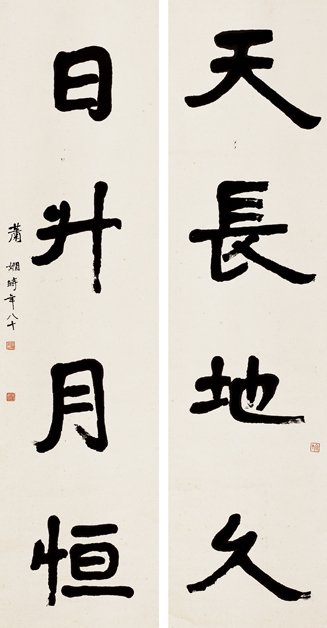 天長地久
日升月恒
蕭嫻時年八十